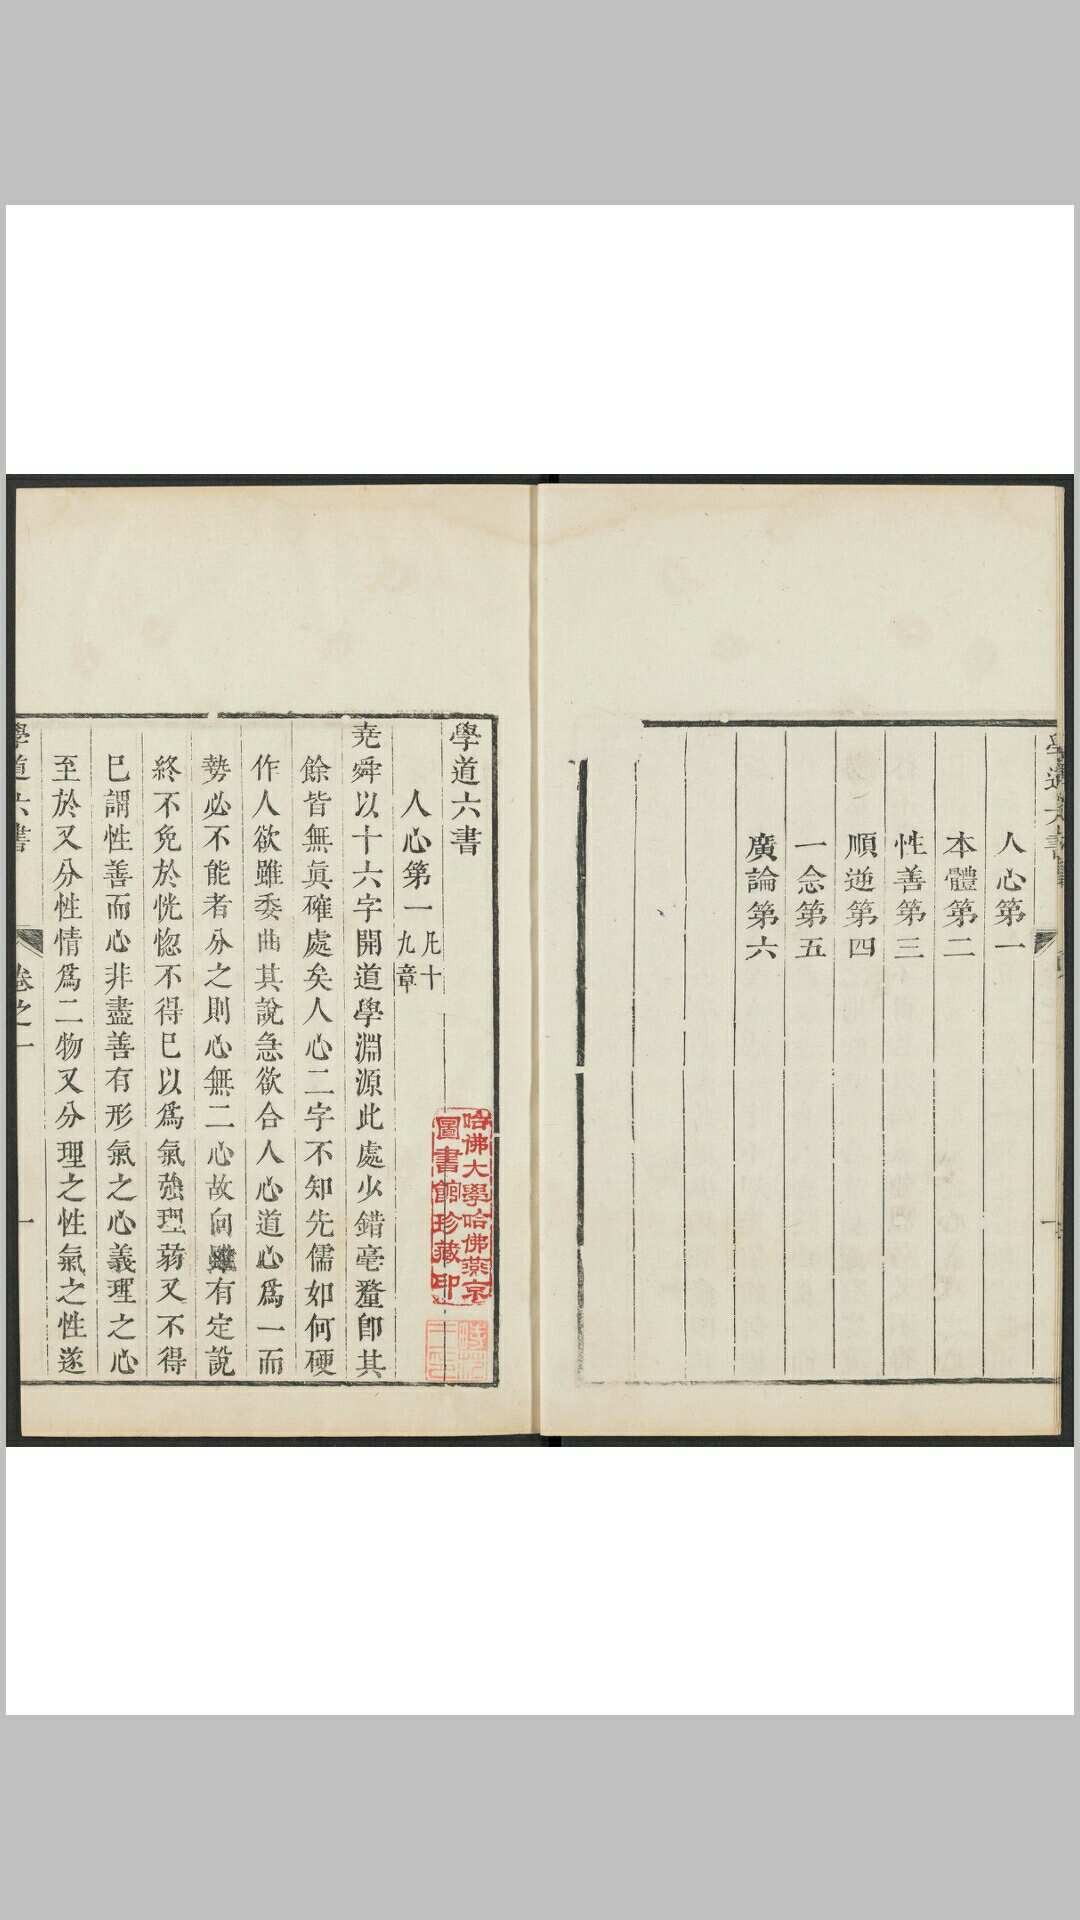 學道六書
人心第一
本體第二
性善第三
順逆第四
一念第五
廣論第六
學道六書
人心第一 凡十九章
堯舜以十六字開道學淵源此處少錯毫釐卽其
餘皆無眞確處矣人心二字不知先儒如何硬
作人欲雖委曲其說急欲合人心道心爲一而
勢必不能者分之則心無二心故向雖有定說
終不免於恍惚不得已以爲氣強理弱又不得
已謂性善而心非盡善有形氣之心義理之心
至於又分性情爲二物又分理之性氣之性遂
學道六書
卷之一
一
哈佛大學哈佛燕京
圖書館珍藏印